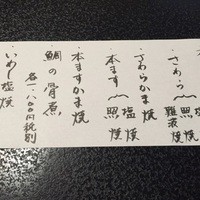 塩焼
・さわら 照焼
難波焼
・本ます 塩焼
照焼
・さわらかま 塩焼
・本ますかま焼
・鯛の骨煮
各一、八〇〇円税別
いわし塩焼